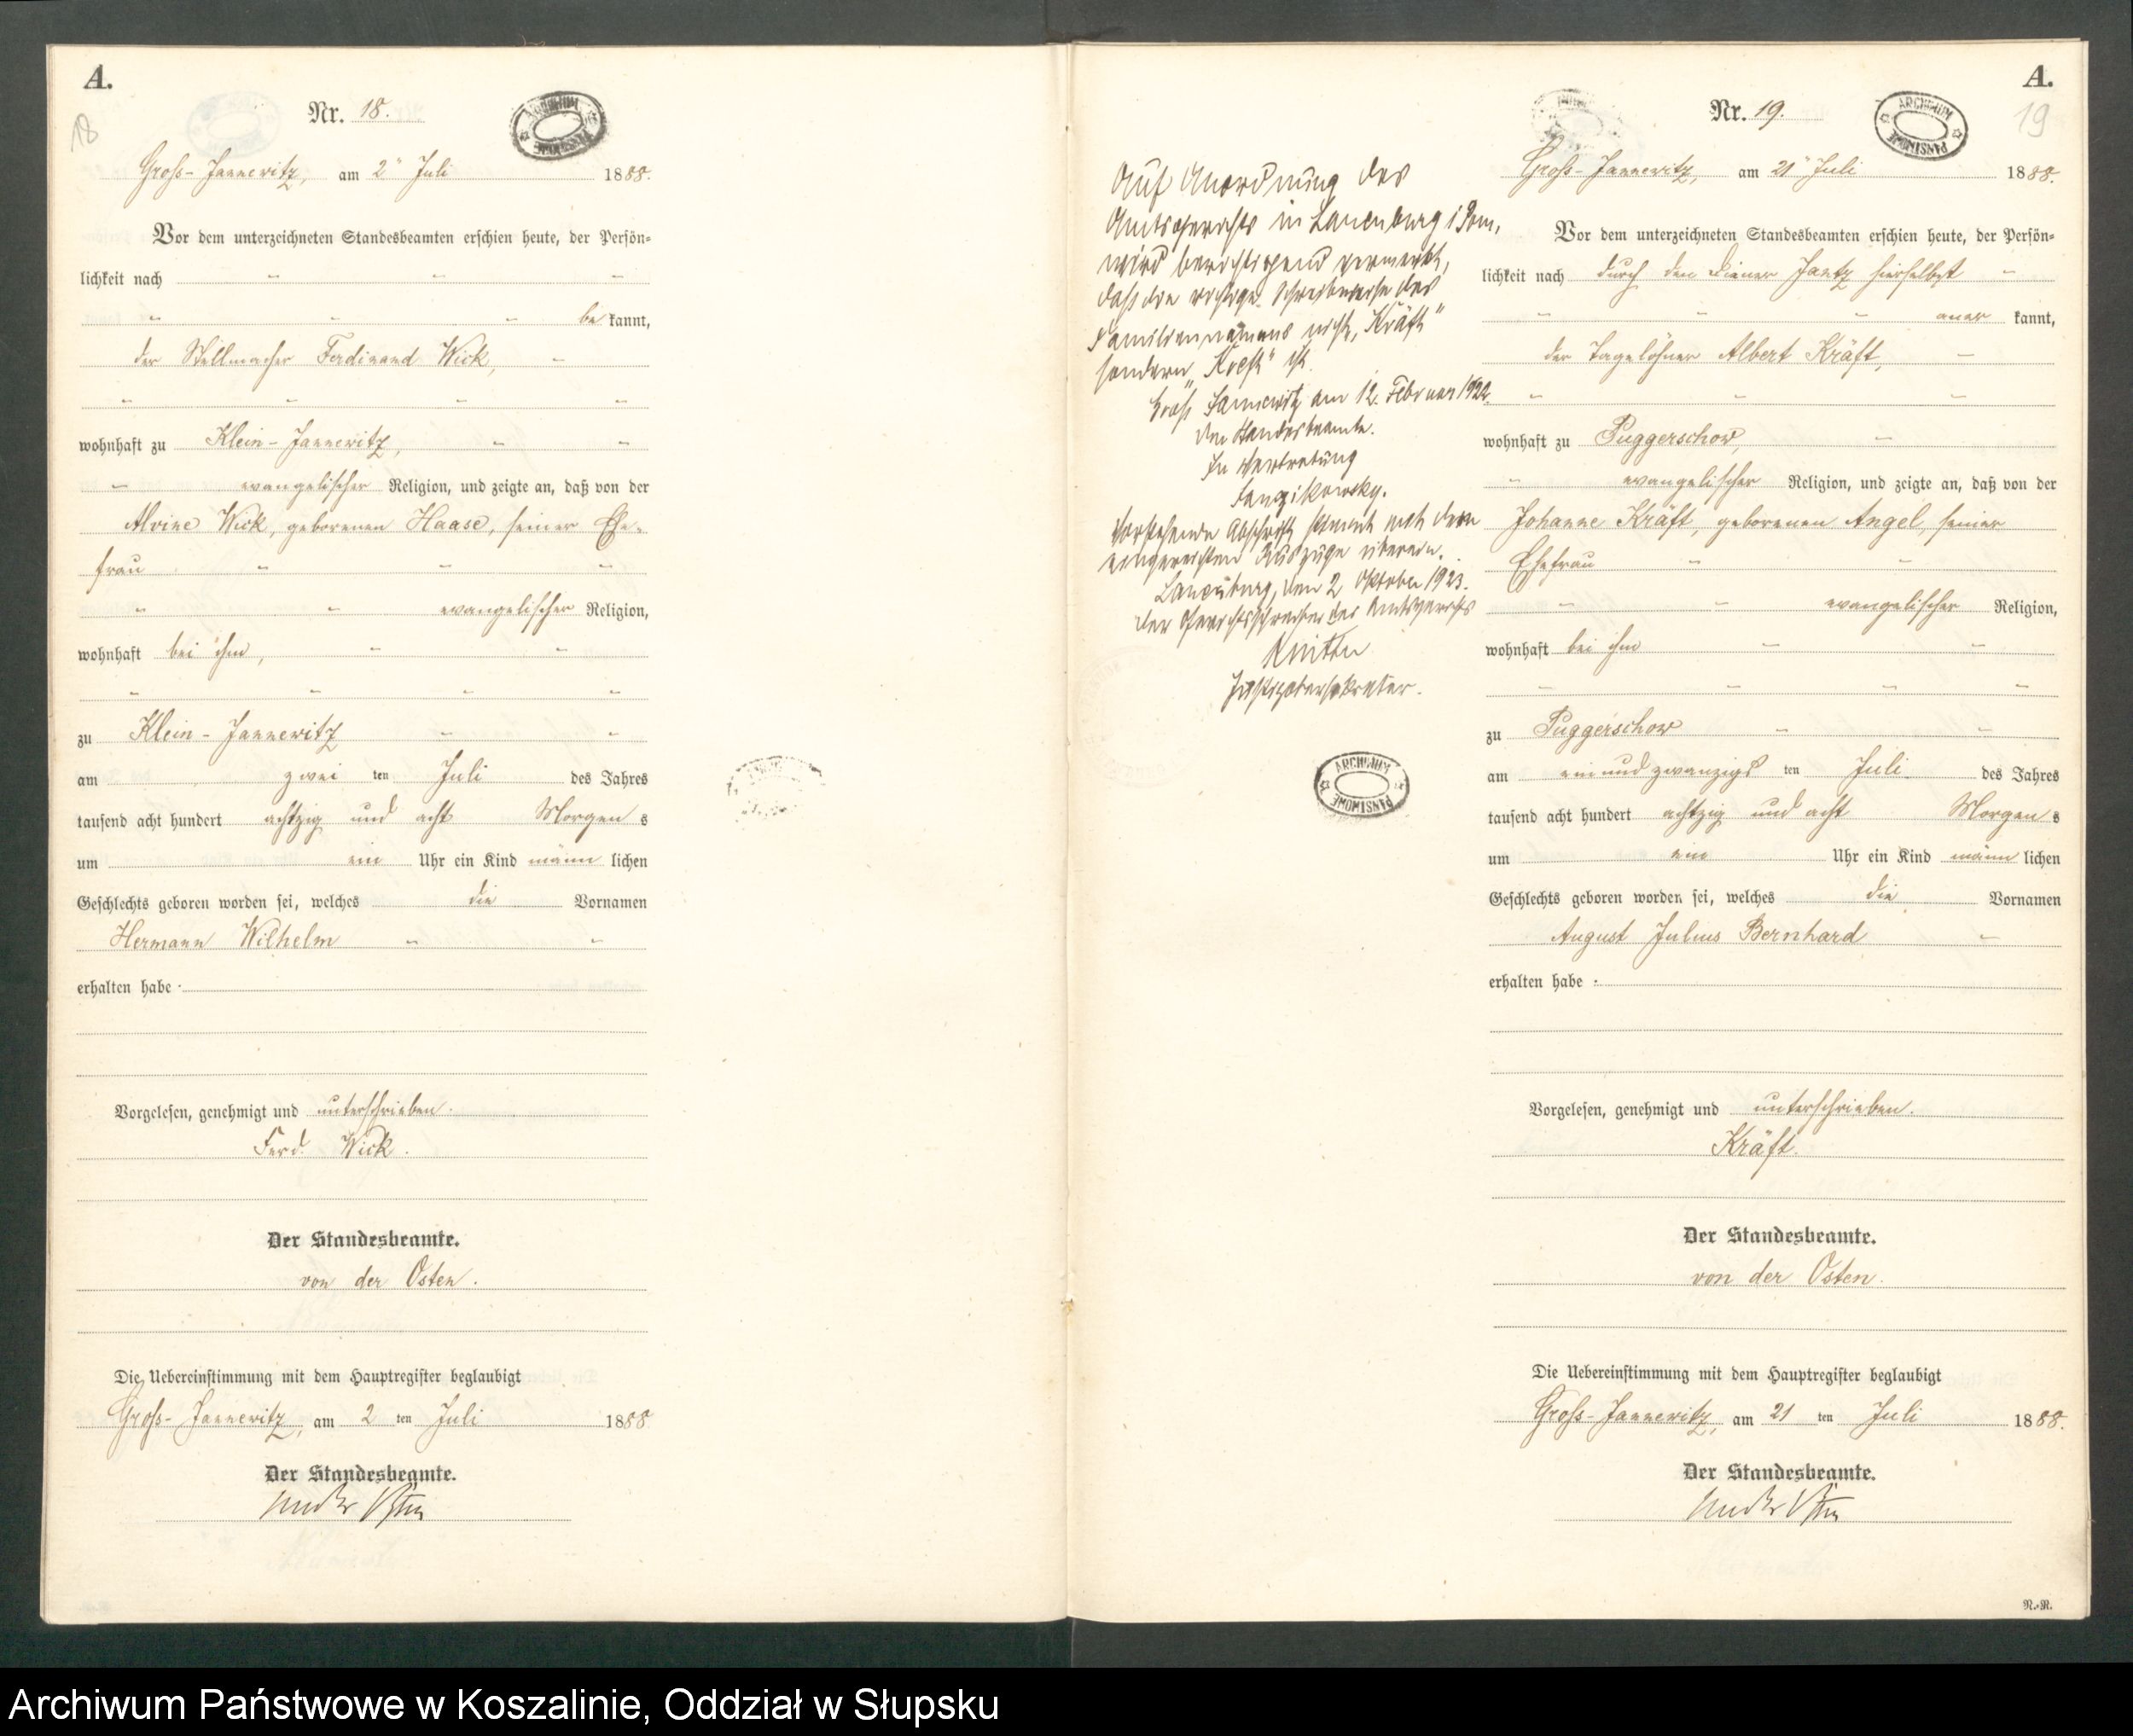 A.
18
Nr. 18.
ARCHIWUM PAŃSTWOWE
Groß-Jannewitz, am 2ten Juli 1888.
Vor dem unterzeichneten Standesbeamten erschien heute, der Persön-
lichkeit nach
be kannt,
der Stellmacher Ferdinand Wick,
wohnhaft zu Klein-Jannewitz,
evangelischer Religion, und zeigte an, daß von der
Alvine Wick, geborenen Haase, seiner Ehe-
frau
evangelischer Religion,
wohnhaft bei ihm,
zu Klein-Jannewitz
am zwei ten Juli des Jahres
tausend acht hundert achtzig und acht Morgen s
um ein Uhr ein Kind männ lichen
Geschlechts geboren worden sei, welches die Vornamen
Hermann Wilhelm
erhalten habe.
Vorgelesen, genehmigt und unterschrieben.
Ferd. Wick.
Der Standesbeamte.
von der Osten.
Die Uebereinstimmung mit dem Hauptregister beglaubigt
Groß-Jannewitz, am 2 ten Juli 1888.
Der Standesbeamte.
von der Osten
Auf Anordnung des
Amtsgerichts in Lauenburg i Pom,
wird berichtigend vermerkt,
daß die richtige Schreibweise des
Familiennamens nicht „Kräft“
sondern „Kreft“ ist.
Groß Jannewitz am 12. Februar 1922.
Der Standesbeamte.
In Vertretung
Vorstehende Abschrift stimmt mit dem
eingereichten Auszuge überein.
Lauenburg, den 2 Oktober 1923.
Der Gerichtsschreiber des Amtsgerichts
Justizobersekretär.
ARCHIWUM PAŃSTWOWE
A.
19
Nr. 19.
ARCHIWUM PAŃSTWOWE
Groß-Jannewitz, am 21ten Juli 1888.
Vor dem unterzeichneten Standesbeamten erschien heute, der Persön-
lichkeit nach durch den Diener Jantz hierselbst
aner kannt,
der Tagelöhner Albert Kräft,
wohnhaft zu Puggerschow,
evangelischer Religion, und zeigte an, daß von der
Johanne Kräft, geborenen Angel, seiner
Ehefrau
evangelischer Religion,
wohnhaft bei ihm
zu Puggerschow
am ein und zwanzigs ten Juli des Jahres
tausend acht hundert achtzig und acht Morgen s
um ein Uhr ein Kind männ lichen
Geschlechts geboren worden sei, welches die Vornamen
August Julius Bernhard
erhalten habe.
Vorgelesen, genehmigt und unterschrieben.
Kräft.
Der Standesbeamte.
von der Osten.
Die Uebereinstimmung mit dem Hauptregister beglaubigt
Groß-Jannewitz, am 21 ten Juli 1888.
Der Standesbeamte.
von der Osten
N.-R.
Archiwum Państwowe w Koszalinie, Oddział w Słupsku